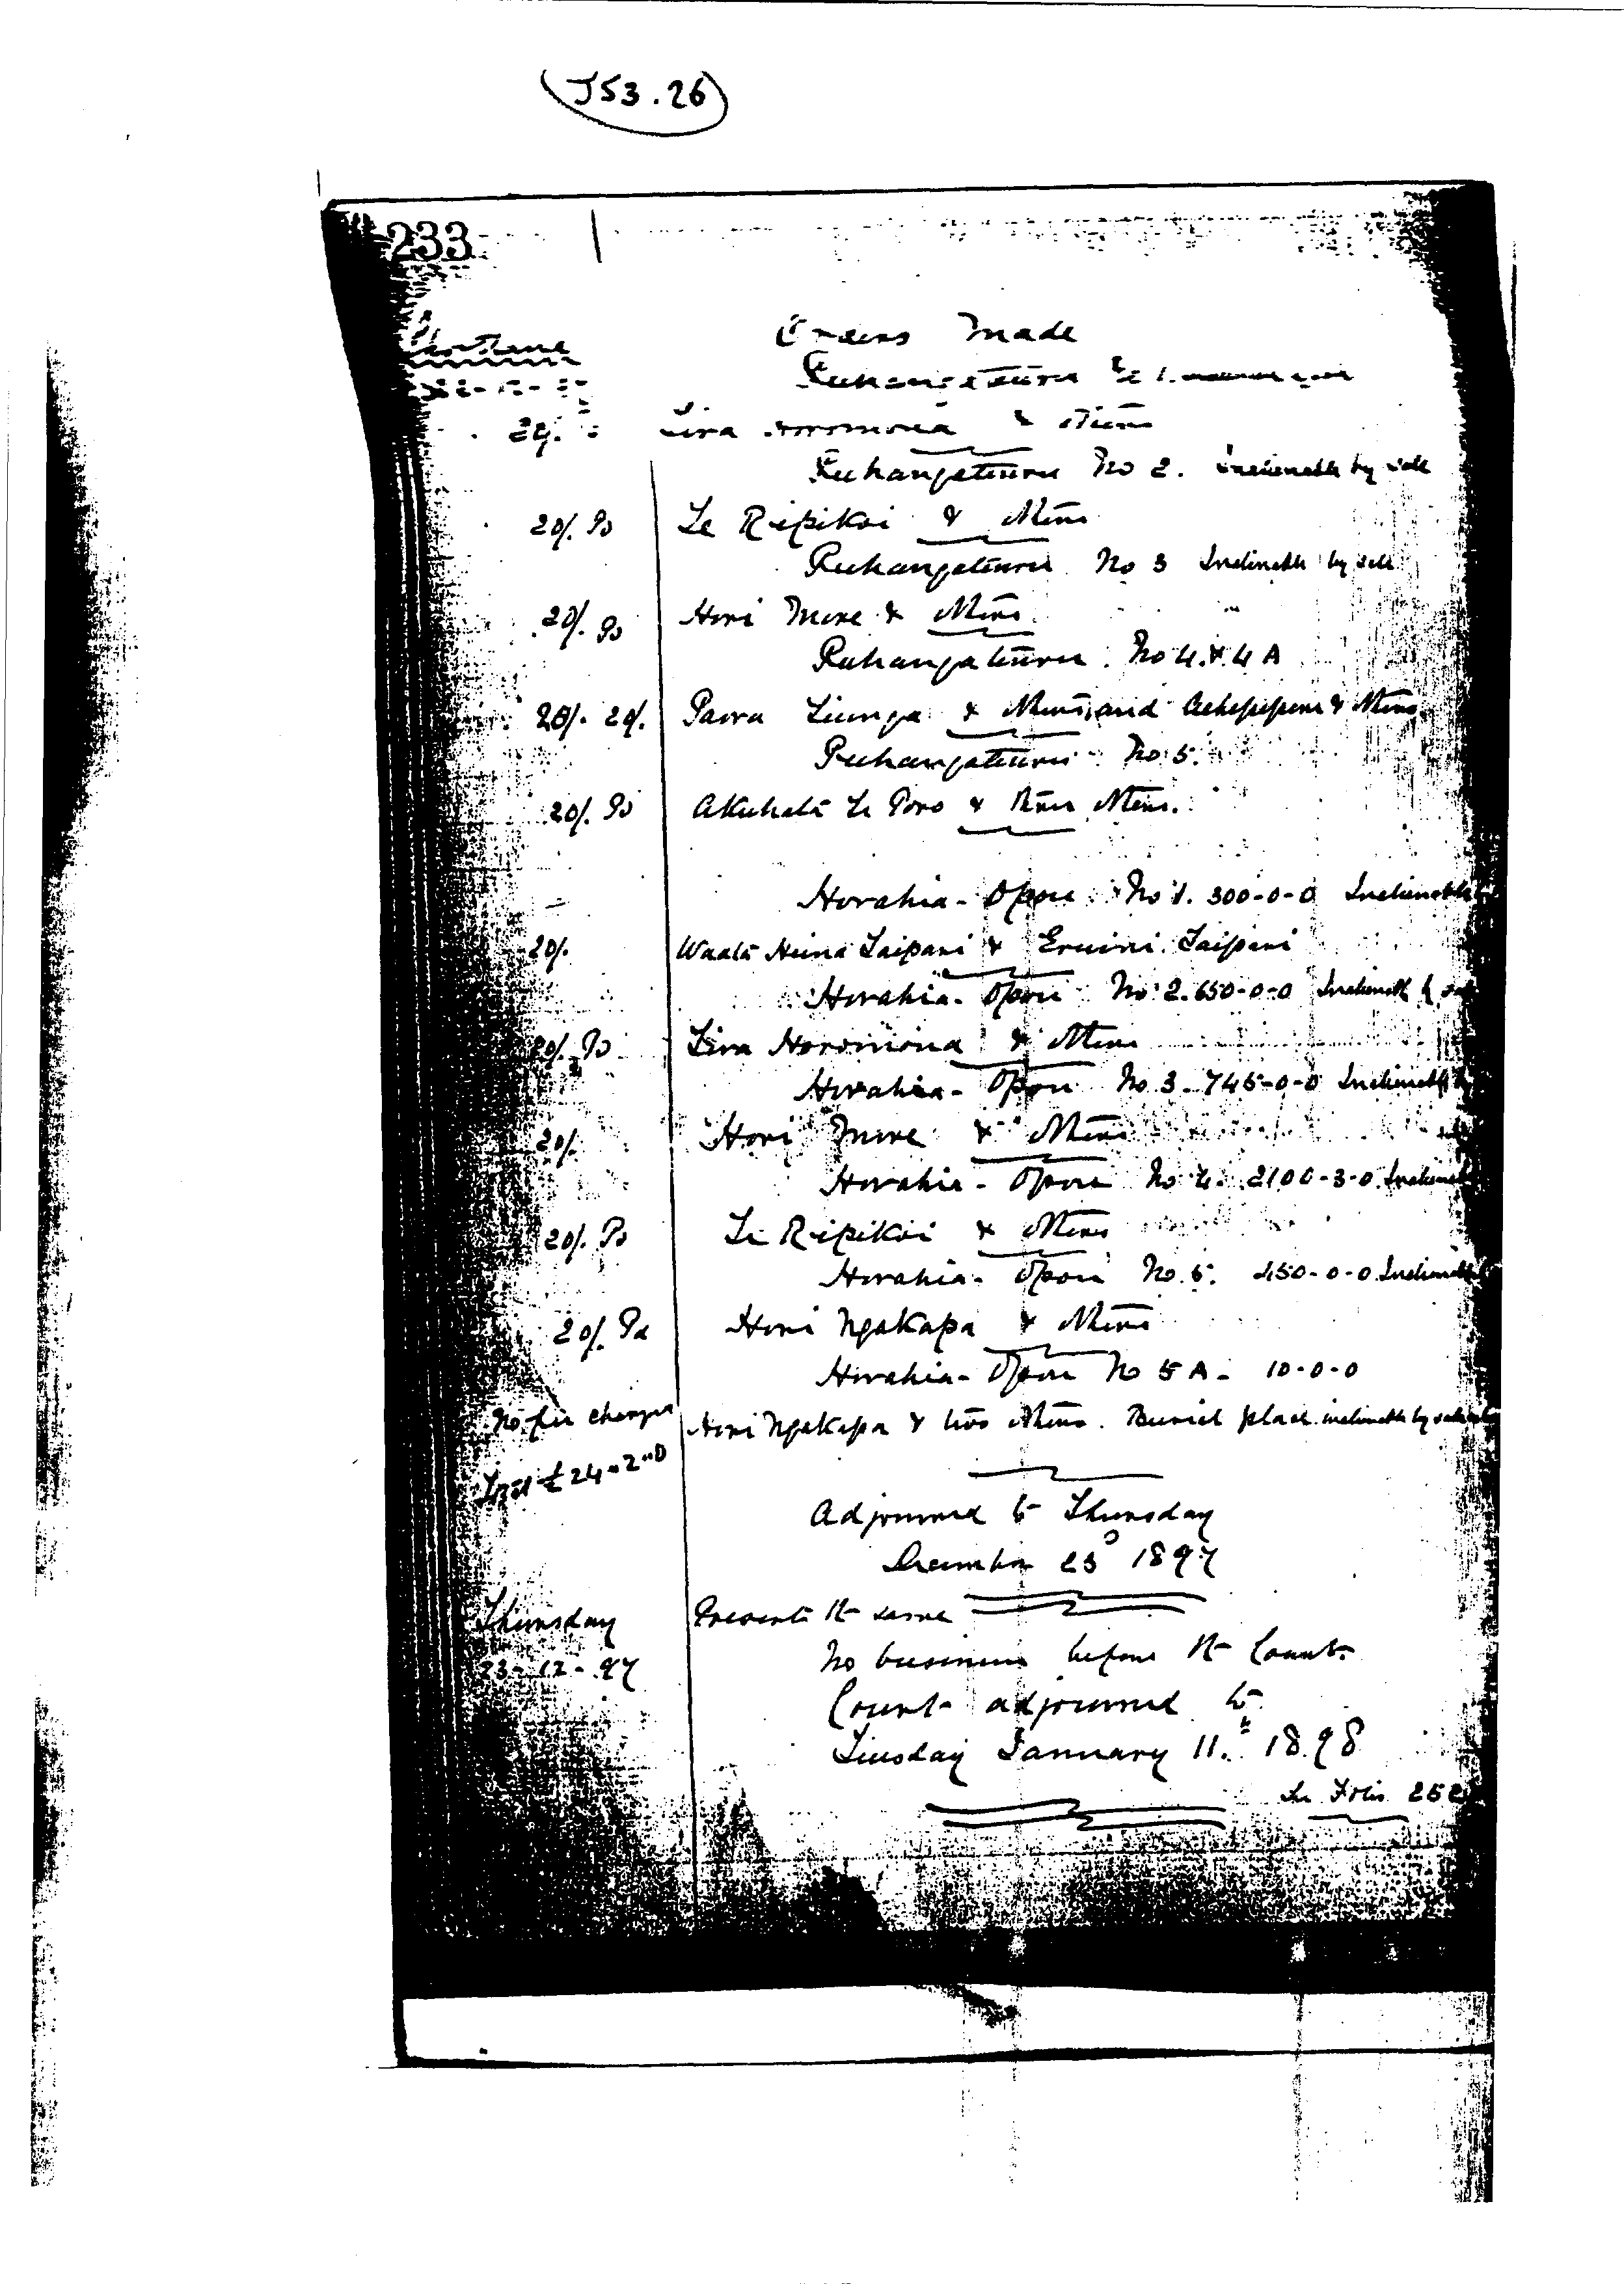 J53.26
233
Orders Made
Ruhangatuuru No 1.
20/.
Ruhangatuuru No 2. Inalienable by sale
20/. Pd Te Ripikoi & Others
Ruhangatuuru No 3 Inalienable by sale
20/. Pd Hori More & Others
Ruhangatuuru No 4 & 4A
20/. 20/. Paora Tiunga & Others and & Others
Ruhangatuuru No 5.
20/. Pd Akuhata Te Poro & Others.
Horahia - Opou No 1. 300-0-0 Inalienable
20/. Waata Huna Taipari & Eruini Taipari
Horahia - Opou No 2. 650-0-0 Inalienable by sale
20/. Pd Tira Horomona & Others
Horahia - Opou No 3. 745-0-0 Inalienable by
20/. Hori More & Others
Horahia - Opou No 4. 2100-3-0 Inalienable
20/. Pd Te Ripikoi & Others
Horahia - Opou No. 5. 450-0-0 Inalienable
20/. Pd Hori Ngakapa & Others
Horahia - Opou No 5A - 10-0-0
No fee charged Hori Ngakapa & two Others. Burial place. inalienable by sale
Total £24"2"0
Adjourned to Thursday
December 23d 1897
Thursday Present the same
23-12-97 No business before the Court.
Court adjourned to
Tuesday January 11th 1898
Folio 252